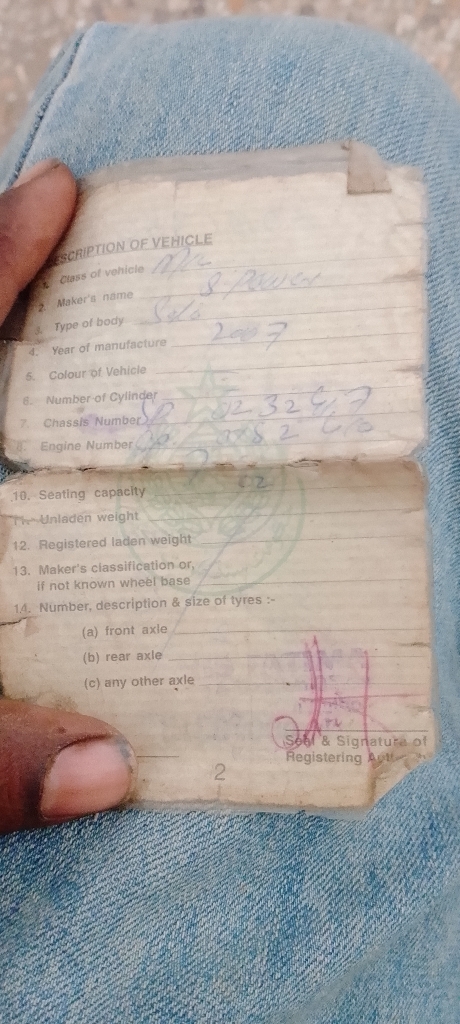 DESCRIPTION OF VEHICLE
1. Class of vehicle
2. Maker's name S. Power
3. Type of body Solo
4. Year of manufacture 2007
5. Colour of Vehicle
6. Number of Cylinder
7. Chassis Number
8. Engine Number
10. Seating capacity 02
11. Unladen weight
12. Registered laden weight
13. Maker's classification or,
if not known wheel base
14. Number, description & size of tyres :-
(a) front axle
(b) rear axle
(c) any other axle
Seal & Signature of
Registering
2